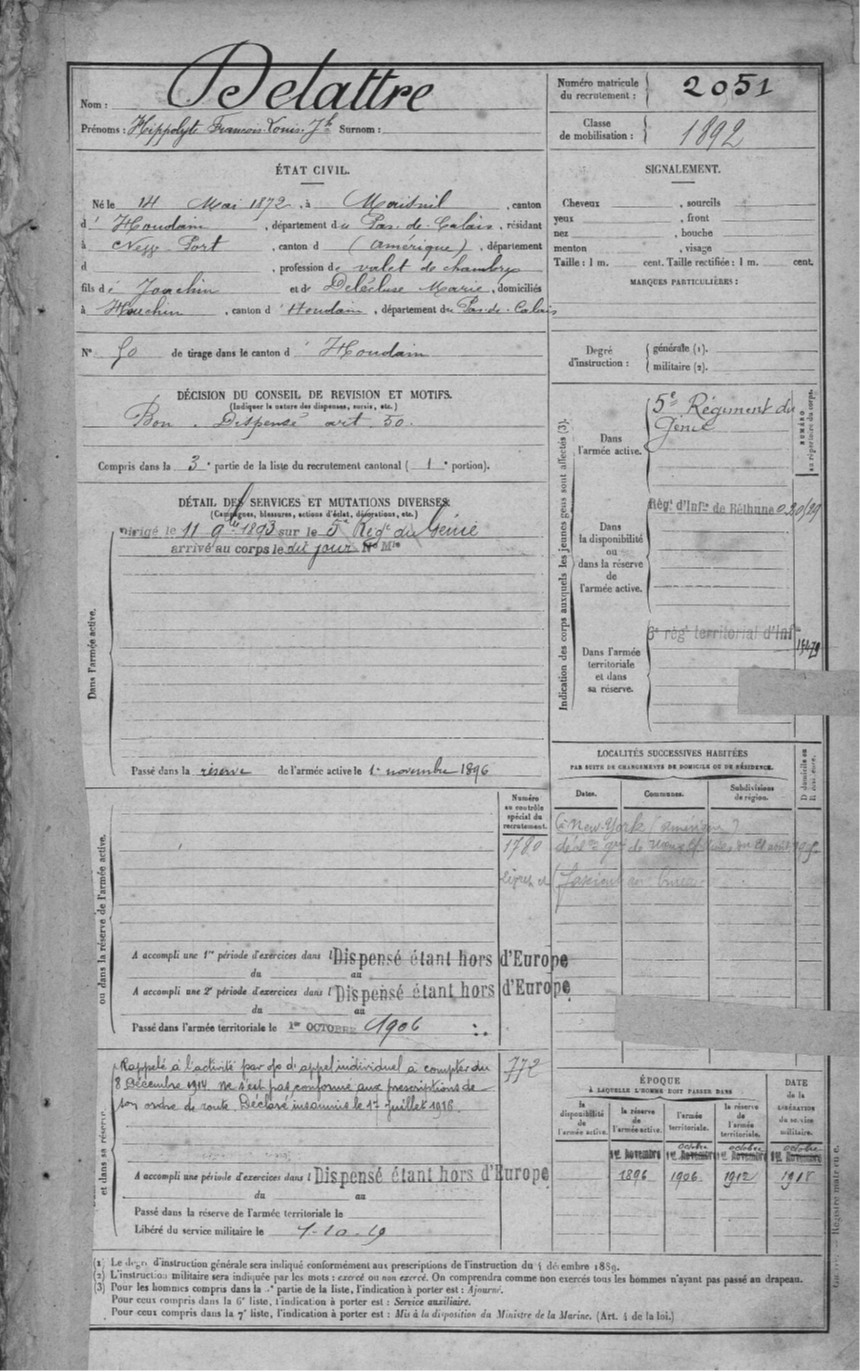 Nom : Delattre
Prénoms : Hippolyte François Louis Jh Surnom :
Numéro matricule du recrutement : 2051
Classe de mobilisation : 1892
ÉTAT CIVIL.
Né le 14 Mai 1872, à Maisnil, canton
d' Houdain, département du Pas-de-Calais, résidant
à New-Port, canton d (amérique), département
d , profession de valet de chambre
fils de Joachin et de Delécluse Marie, domiciliés
à Houchin, canton d' Houdain, département du Pas-de-Calais
N° 50 de tirage dans le canton d' Houdain
DÉCISION DU CONSEIL DE REVISION ET MOTIFS.
(Indiquer la nature des dispenses, sursis, etc.)
Bon. Dispensé art. 50.
Compris dans la 3e partie de la liste du recrutement cantonal (1e portion).
SIGNALEMENT.
Cheveux , sourcils
yeux , front
nez , bouche
menton , visage
Taille : 1 m. cent. Taille rectifiée : 1 m. cent.
MARQUES PARTICULIÈRES :
Degré d'instruction : générale (1).
militaire (2).
DÉTAIL DES SERVICES ET MUTATIONS DIVERSES.
(Campagnes, blessures, actions d'éclat, décorations, etc.)
Dans l'armée active.
Dirigé le 11 9bre 1893 sur le 5e Régt du Génie
arrivé au corps le dit jour No Mle
Passé dans la réserve de l'armée active le 1er novembre 1896
Indication des corps auxquels les jeunes gens sont affectés (3).
NUMÉRO au répertoire du corps.
Dans l'armée active.
5e Régiment du
Génie
Dans la disponibilité ou dans la réserve de l'armée active.
Régt d'Infie de Béthune
Dans l'armée territoriale et dans sa réserve.
6e régt territorial d'Infie
LOCALITÉS SUCCESSIVES HABITÉES
PAR SUITE DE CHANGEMENTS DE DOMICILE OU DE RÉSIDENCE.
Dates. Communes. Subdivisions de région. D domicile ou R résidence.
New-York (amérique)
ou dans la réserve de l'armée active.
Numéro au contrôle spécial du recrutement.
1780
A accompli une 1re période d'exercices dans l Dispensé étant hors d'Europe
du au
A accompli une 2e période d'exercices dans l Dispensé étant hors d'Europe
du au
Passé dans l'armée territoriale le 1er OCTOBRE 1906
et dans sa réserve.
772
Rappelé à l'activité par o/o d'appel individuel à compter du
8 Décembre 1914. Ne s'est pas conformé aux prescriptions de
son ordre de route. Déclaré insoumis le 17 juillet 1918.
A accompli une période d'exercices dans l Dispensé étant hors d'Europe
du au
Passé dans la réserve de l'armée territoriale le
Libéré du service militaire le 1-10-19
ÉPOQUE
À LAQUELLE L'HOMME DOIT PASSER DANS
la disponibilité de l'armée active. la réserve de l'armée active. l'armée territoriale. la réserve de l'armée territoriale. DATE de la LIBÉRATION du service militaire.
octobre octobre octobre
1er Novembre 1er Novembre 1er Novembre 1er Novembre
1896 1906 1912 1918
(1) Le degré d'instruction générale sera indiqué conformément aux prescriptions de l'instruction du 4 décembre 1889.
(2) L'instruction militaire sera indiquée par les mots : exercé ou non exercé. On comprend comme non exercés tous les hommes n'ayant pas passé au drapeau.
(3) Pour les hommes compris dans la partie de la liste, l'indication à porter est : Ajourné.
Pour ceux compris dans la 6e liste, l'indication à porter est : Service auxiliaire.
Pour ceux compris dans la 7e liste, l'indication à porter est : Mis à la disposition du Ministre de la Marine. (Art. 4 de la loi.)